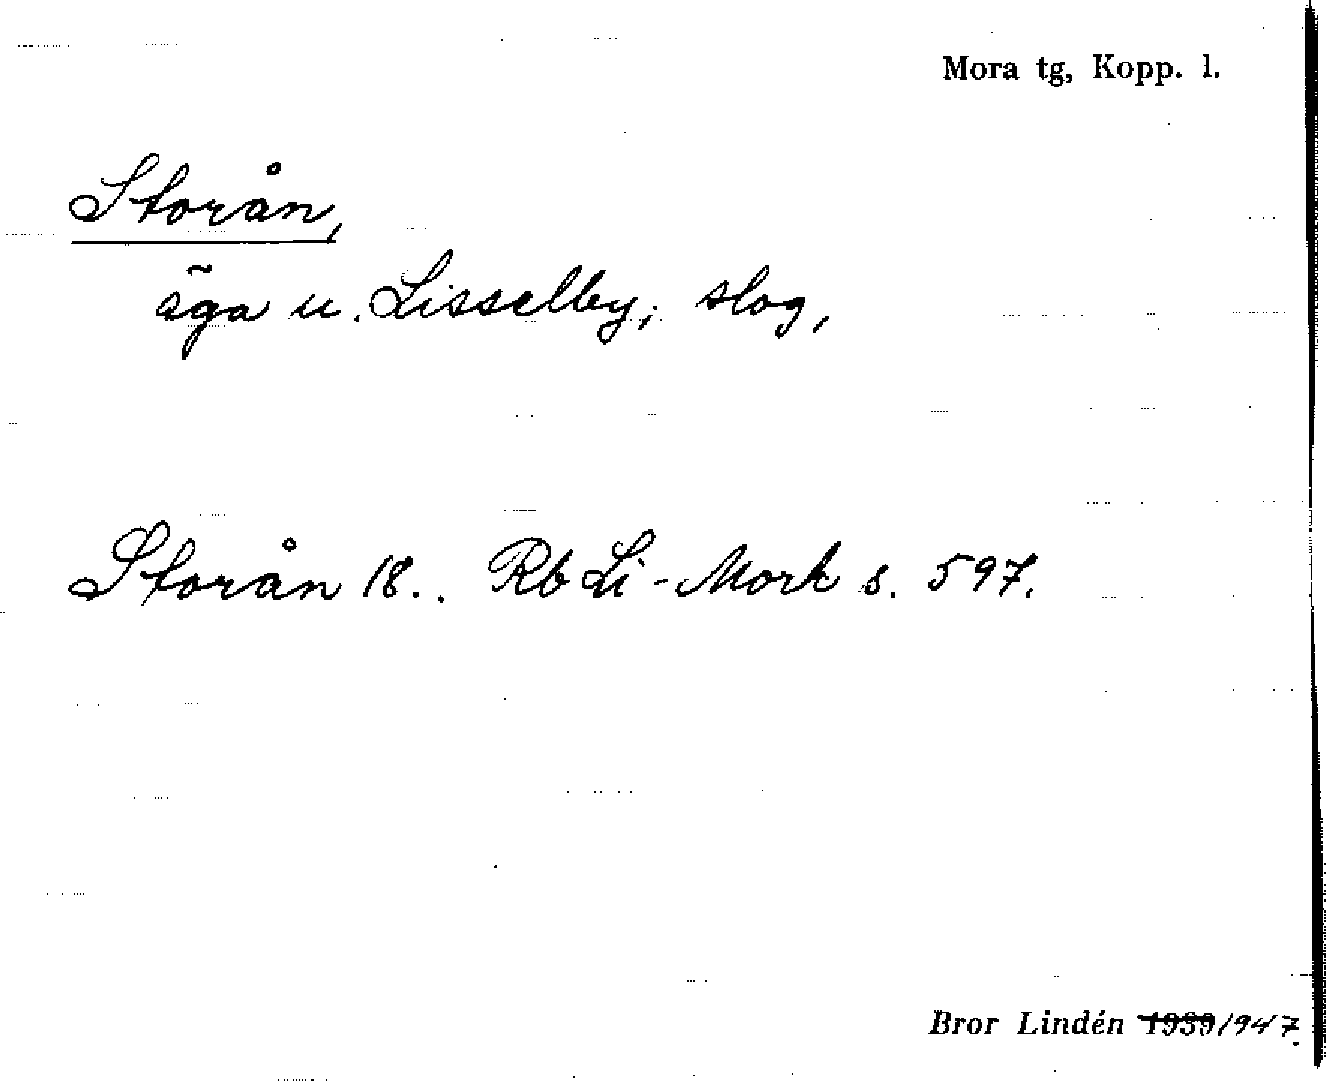 Mora tg, Kopp. l.
Storån,
äga u. Lisselby; slog,
Storån 18.. Rb Li-Mork s. 597.
Bror Lindén 1939 1947.